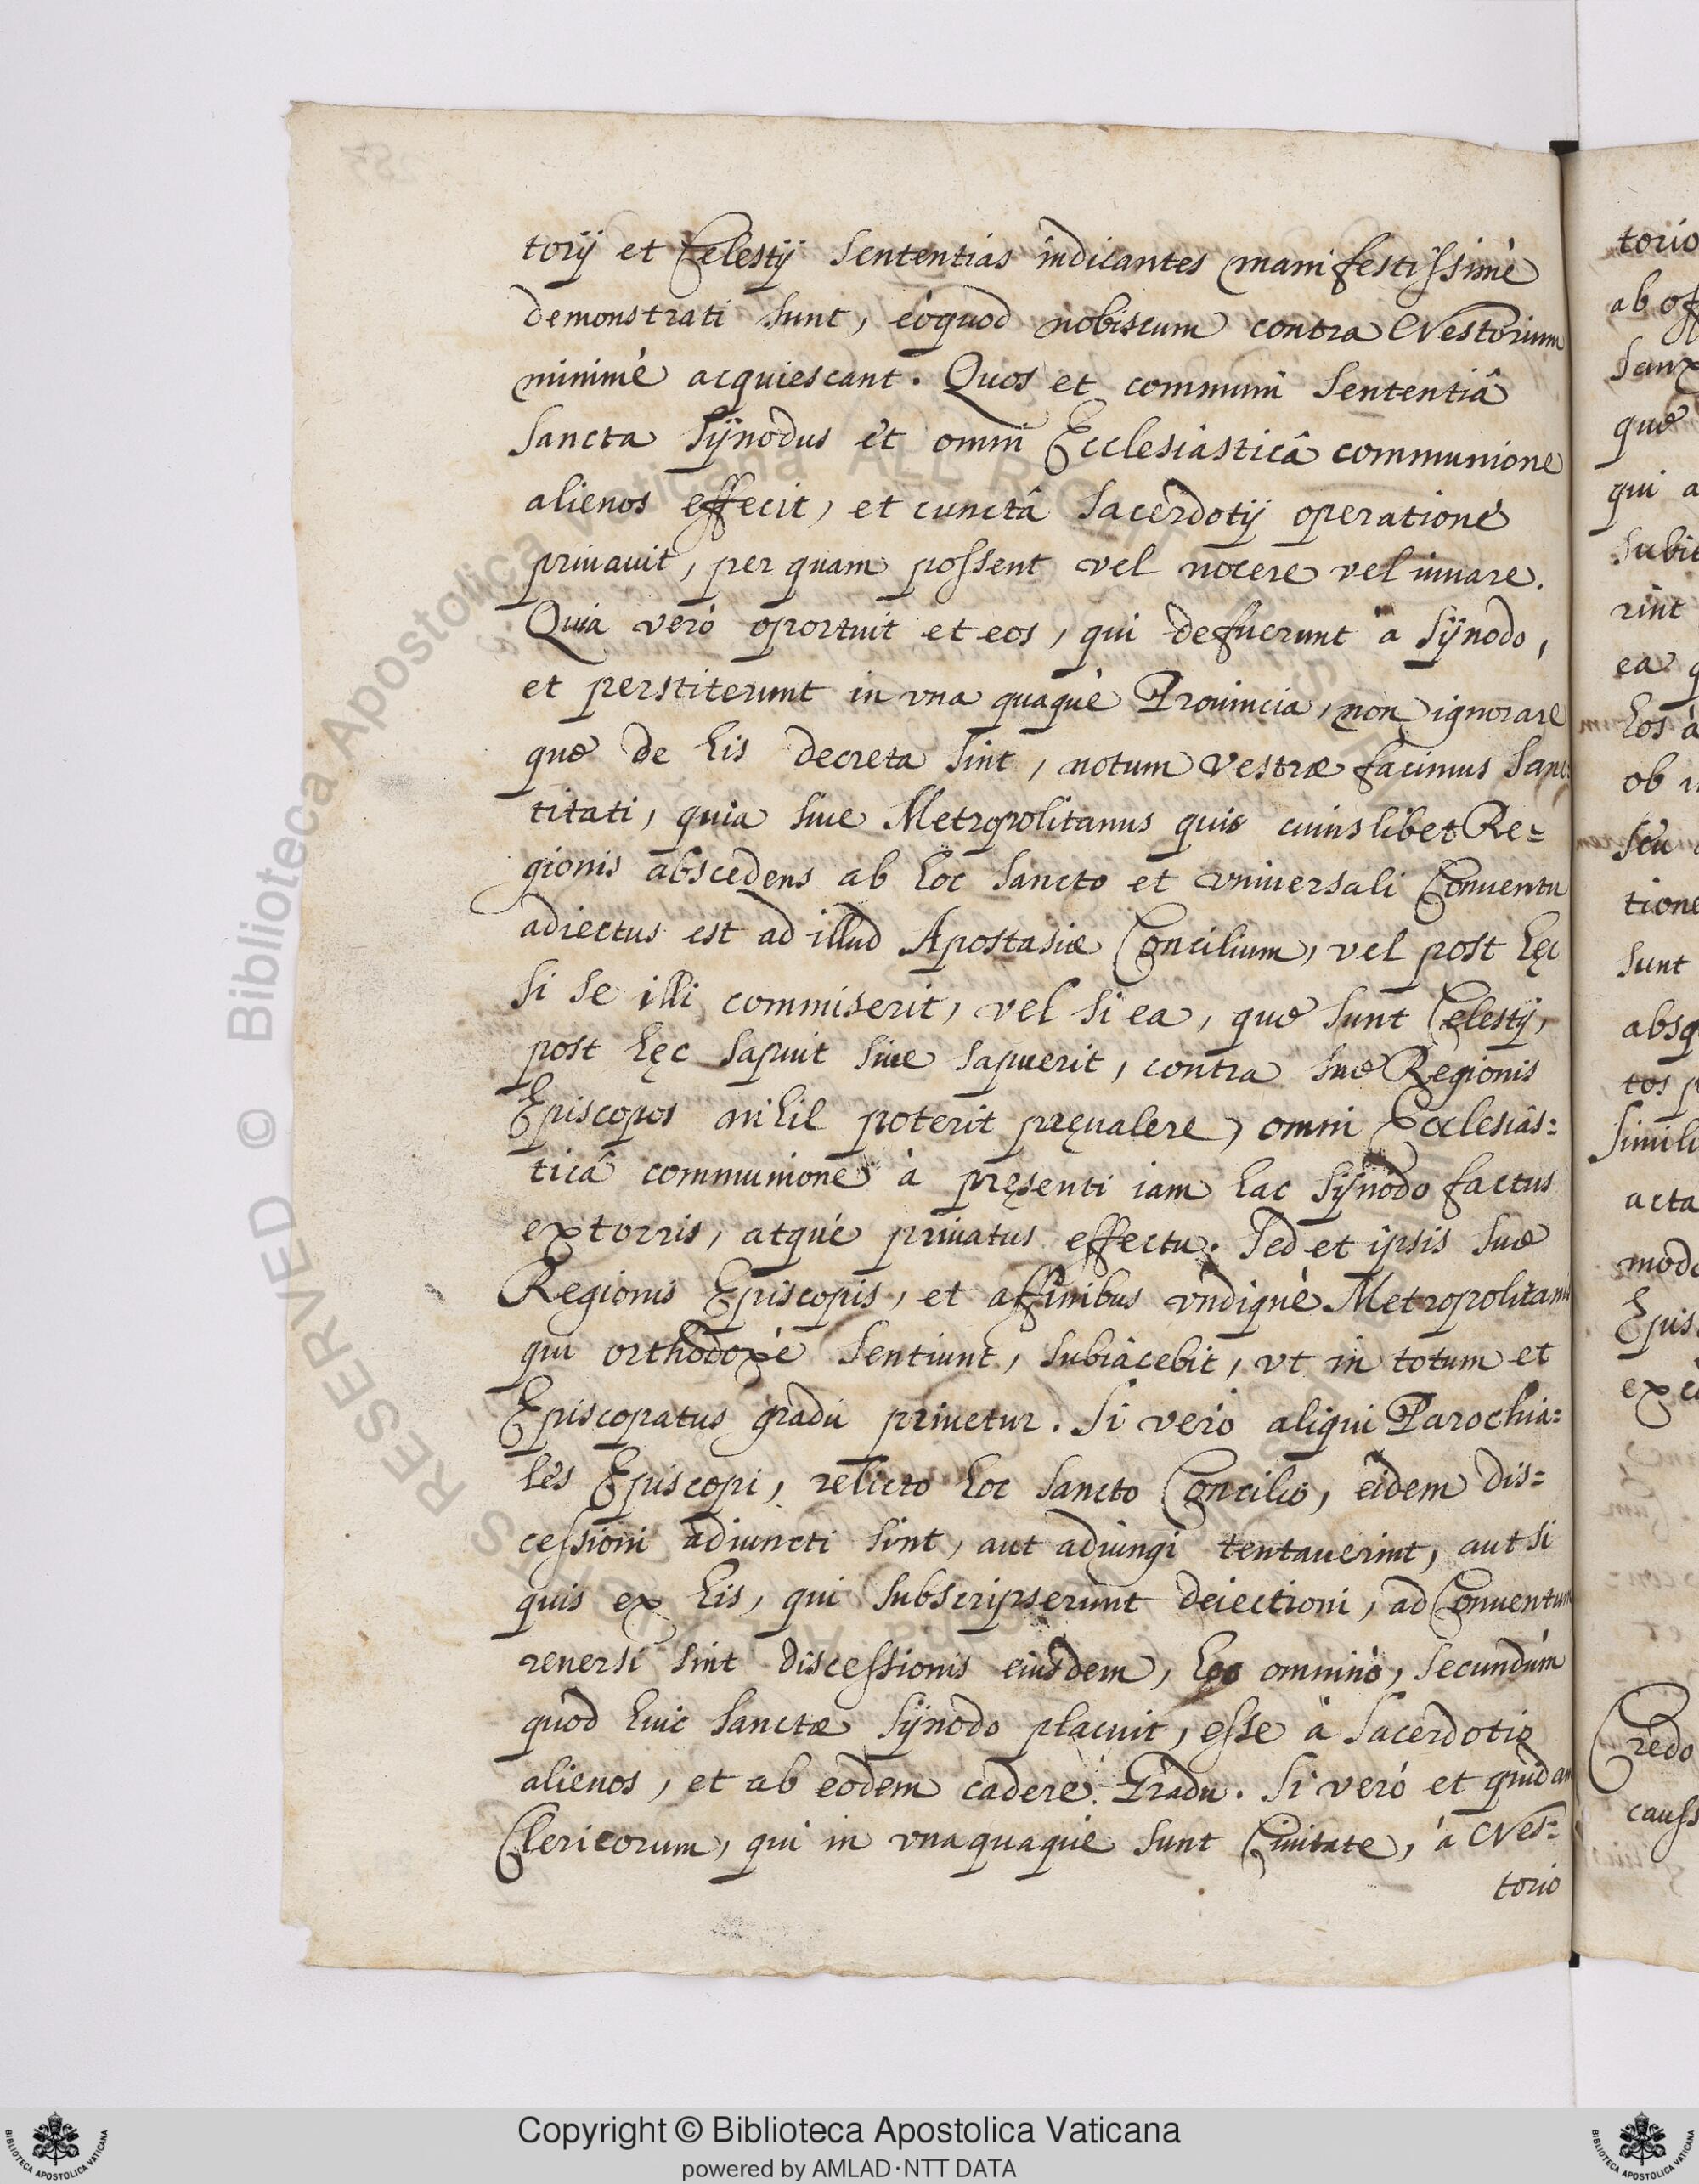 torij et Celestij sententias indicantes manifestissimè
demonstrati sunt, eòquod nobiscum contra Nestorium
minimè acquiescant. Quos et communi sententiâ
Sancta Sÿnodus et omni Ecclesiasticâ communione
alienos effecit, et cunctâ Sacerdotij operatione
priuauit, per quam possent vel nocere vel iuuare.
Quia verò oportuit et eos, qui defuerunt à Sÿnodo,
et perstiterunt in vna quaque Prouincia, non ignorare
quæ de his decreta sint, notum vestræ facimus Sanc
titati, quia siue Metropolitanus quis cuiuslibet Re=
gionis abscedens ab hoc sancto et vniuersali Conuentu
adiectus est ad illud Apostasiæ Concilium, vel post hęc
si se illi commiserit, vel si ea, quæ sunt Celestij,
post hęc sapuit siue sapuerit, contra suæ Regionis
Episcopos nihil poterit pręualere, omni Ecclesias=
ticâ communione à pręsenti iam hac Sÿnodo factus
extorris, atque priuatus effectu. Sed et ipsis suæ
Regionis Episcopis, et affinibus vndique Metropolitanis
qui orthodoxè sentiunt, subiacebit, vt in totum et
Episcopatus gradu priuetur. Si verò aliqui Parochia=
les Episcopi, relicto hoc sancto Concilio, eidem dis=
cessioni adiuncti sint, aut adiungi tentauerint, aut si
quis ex his, qui subscripserunt deiectioni, ad Conuentum
reuersi sint discessionis eiusdem, hos omninò, secundùm
quod huic sanctæ Sÿnodo placuit, esse à Sacerdotio
alienos, et ab eodem cadere Gradu. Si verò et quidam
Clericorum, qui in vnaquaque sunt Ciuitate, à Nes=
torio
torio
ab off
sanx
quæ
qui a
subie
rint
ea q
hos à
ob i
seu
tione
sunt
absq
tos p
simili
acta
modo
Epis
ex
Credo
causs
Copyright © Biblioteca Apostolica Vaticana
powered by AMLAD·NTT DATA